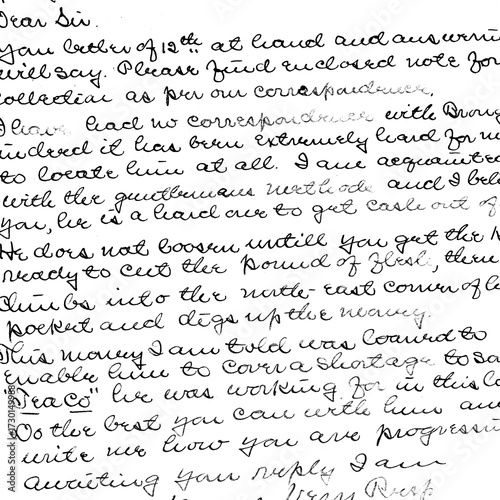 Dear Sir.
You letter of 12th at hand and answering
will say. Please find enclosed note for
collection as per our correspondence.
I have had no correspondence with Brown
indeed it has been extremely hard for m
to locate him at all. I am acquainted
with the gentlemans methods and I bel
you, he is a hard one to get cash out of
He does not loosen untill you get the k
ready to cut the pound of flesh, then
climbs into the north-east corner of
pocket and digs up the money.
This money I am told was loaned to
enable him to cover a shortage to sa
Tea Co" he was working for in this
Do the best you can with him an
write me how you are progressi
awaiting you reply I am
Very Resp